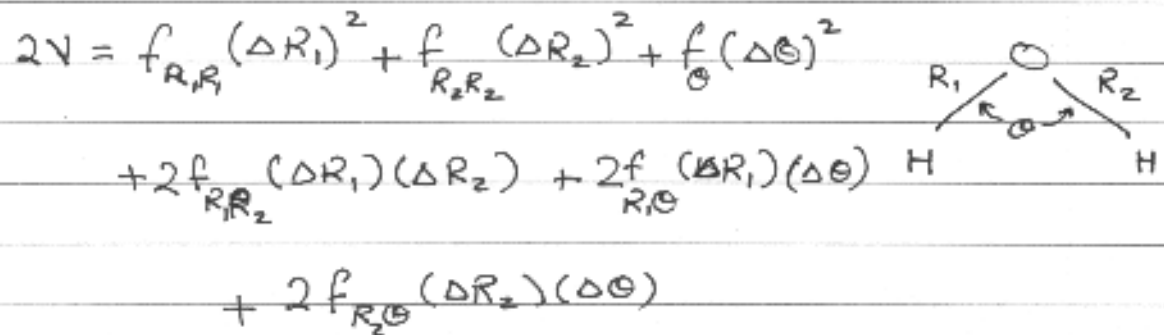 2V = f_{R₁R₁}(ΔR₁)² + f_{R₂R₂}(ΔR₂)² + f_θ(Δθ)²
+ 2f_{R₁R₂}(ΔR₁)(ΔR₂) + 2f_{R₁θ}(ΔR₁)(Δθ)
+ 2f_{R₂θ}(ΔR₂)(Δθ)
O
R₁ R₂
θ
H H